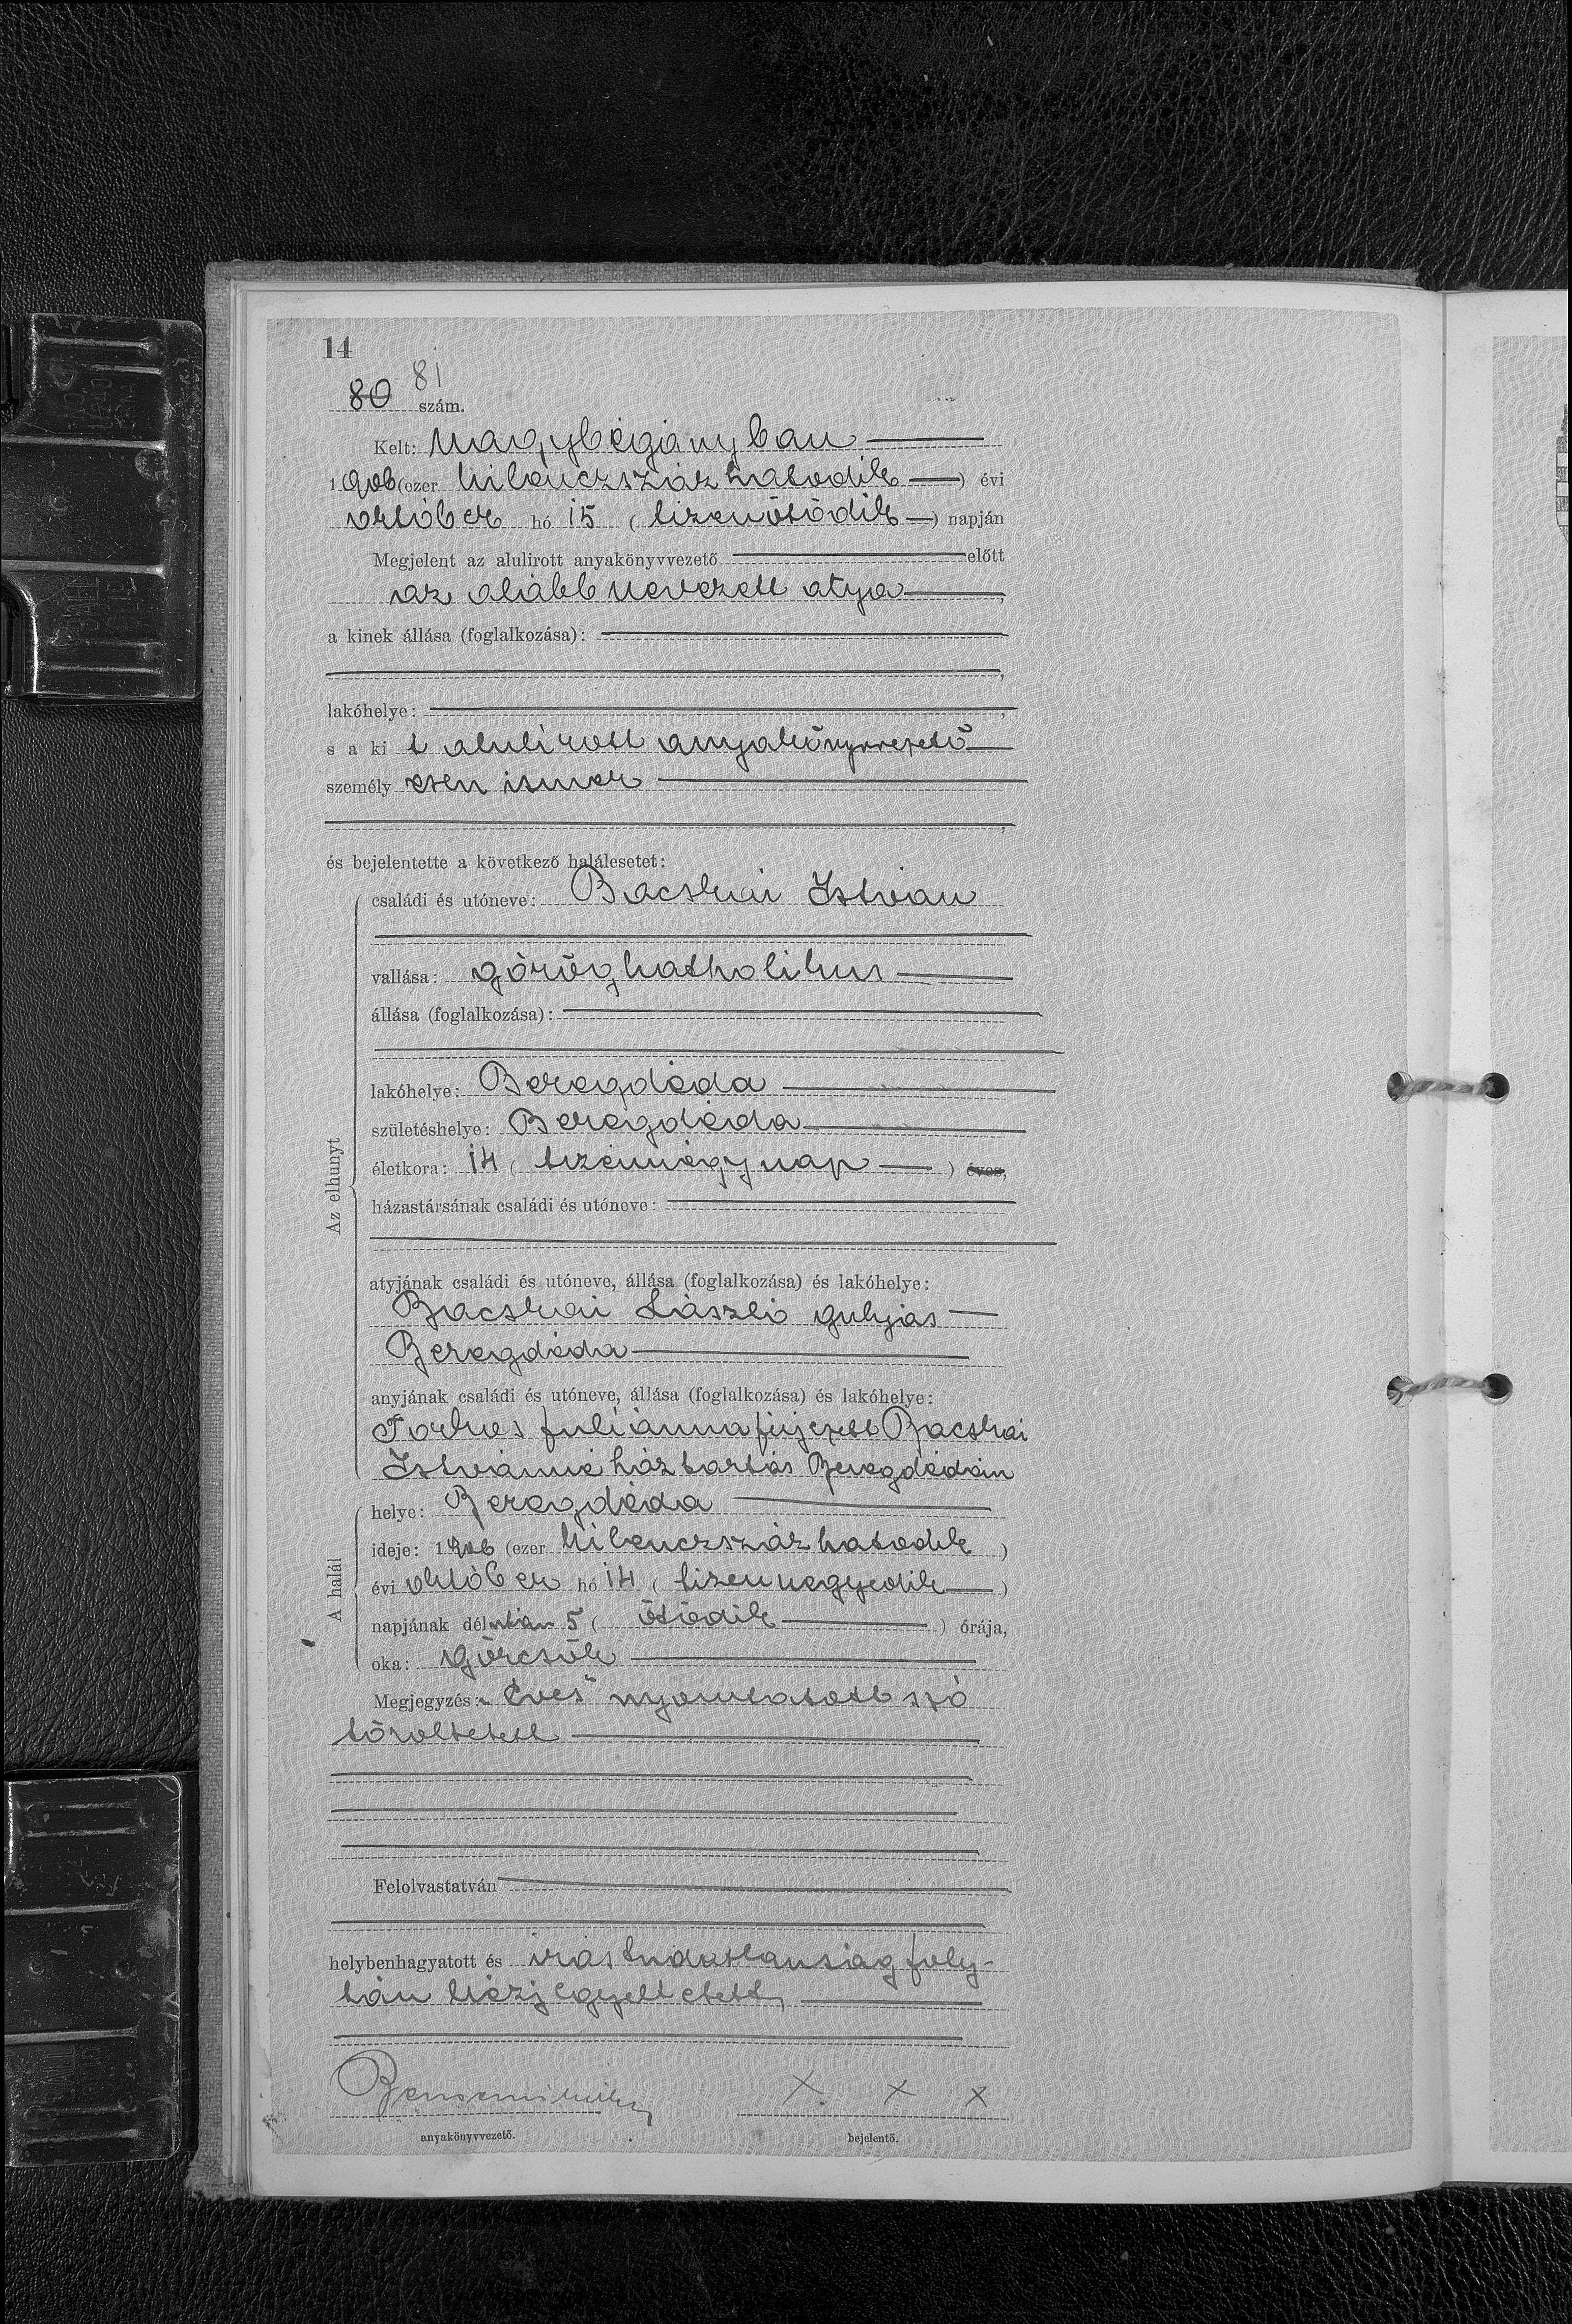 14
80 81 szám.
Kelt: Nagybégányban
1906 (ezer kilenczszáz hatodik) évi
október hó 15 (tizenötödik) napján
Megjelent az alulirott anyakönyvvezető előtt
az alább nevezett atya,
a kinek állása (foglalkozása):
lakóhelye:
s a ki t alulirott anyakönyvvezető
személy esen ismer
és bejelentette a következő halálesetet:
Az elhunyt
családi és utóneve: Bacskai István
vallása: görög katholikus
állása (foglalkozása):
lakóhelye: Beregdéda
születéshelye: Beregdéda
életkora: 14 (tizennégy nap) éves,
házastársának családi és utóneve:
atyjának családi és utóneve, állása (foglalkozása) és lakóhelye:
Bacskai László gulyás
Beregdéda
anyjának családi és utóneve, állása (foglalkozása) és lakóhelye:
Julianna férjezett Bacskai
Istvánné háztartás Beregdédán
A halál
helye: Beregdéda
ideje: 1906 (ezer kilenczszáz hatodik)
évi október hó 14 (tizennegyedik)
napjának délután 5 (ötödik) órája,
oka: görcsök
Megjegyzés: „éves" nyomtatott szó
töröltetett
Felolvastatván
helybenhagyatott és irástudatlanság foly-
tán kézjegyeltetett,
X. X X
anyakönyvvezető. bejelentő.